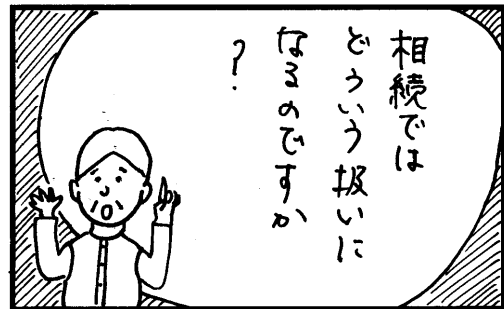 相続では
どういう扱いに
なるのですか
?